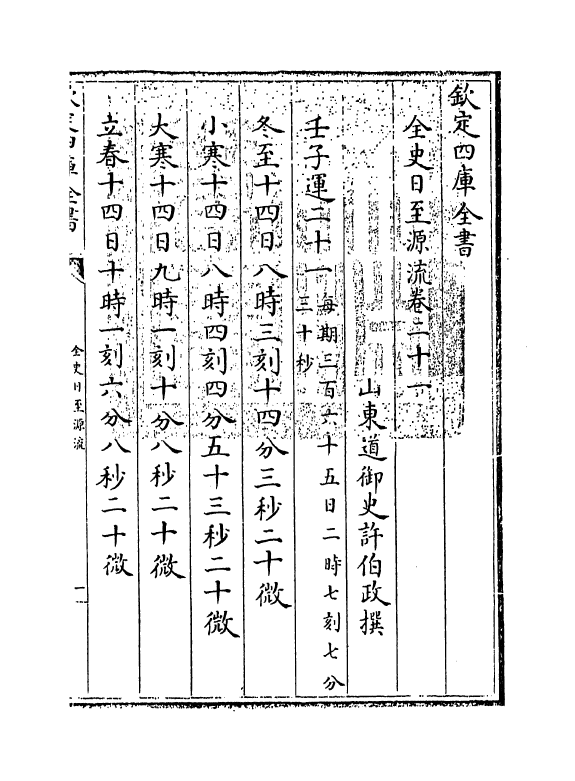 欽定四庫全書
全史日至源流卷二十一
山東道御史許伯政撰
壬子運二十一每期三百六十五日二時七刻七分
三十秒
冬至十四日八時三刻十四分三秒二十微
小寒十四日八時四刻四分五十三秒二十微
大寒十四日九時一刻十分八秒二十微
立春十四日十時一刻六分八秒二十微
欽定四庫全書
全史日至源流
一